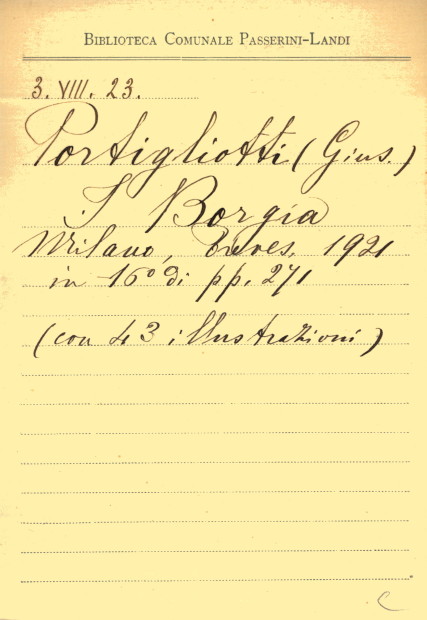 BIBLIOTECA COMUNALE PASSERINI-LANDI
3. VIII. 23.
Portigliotti (Gius.)
I Borgia
Milano, Treves, 1921
in 16° di pp. 271
(con 43 illustrazioni)
C